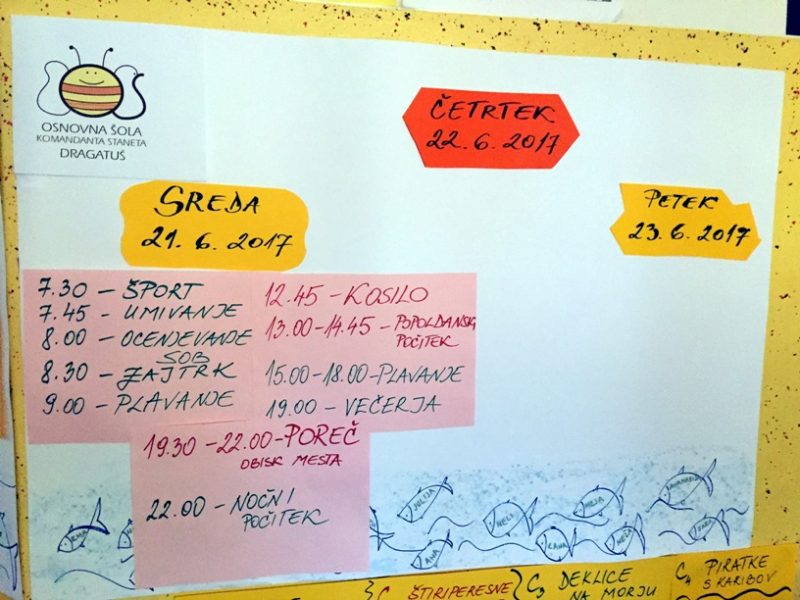 OŠ
OSNOVNA ŠOLA
KOMANDANTA STANETA
DRAGATUŠ
ČETRTEK
22. 6. 2017
SREDA
21. 6. 2017
PETEK
23. 6. 2017
7.30 – ŠPORT
7.45 – UMIVANJE
8.00 – OCENJEVANJE
SOB
8.30 – ZAJTRK
9.00 – PLAVANJE
12.45 – KOSILO
13.00–14.45 – POPOLDANSKI
POČITEK
15.00–18.00–PLAVANJE
19.00 – VEČERJA
19.30 –22.00–POREČ
OBISK MESTA
22.00 – NOČNI
POČITEK
JULIJA
NELI
NEJA
ANA
LANA
ŠTIRIPERESNE
C3 DEKLICE
NA MORJU
C4 PIRATKE
S KARIBOV